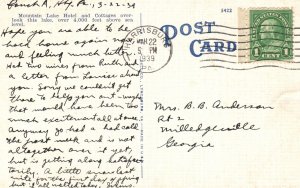 Ranch A, Wy. Pa, 3-22-39
Mountain Lake Hotel and Cottages over-
look this lake, over 4,000 feet above sea
level.
Hope you are able to be
back home again now
and feeling much better.
Had two wires from Ruth and
a letter from Louise about
you. Sorry we couldn't get
there to help you out - imagine
that would have been too
much excitement all at once.
Anyway Jos had a bad cold
the past week and is not
altogether over it yet,
but is getting along satisfac-
torily. A little snow last
nite for the first day of spring
but it all melted
POST
CARD
5422
MAR 22
PM
1939
PA.
1 CENT 1
Mrs. B. B. Anderson
Rt 2
Milledgeville
Georgia